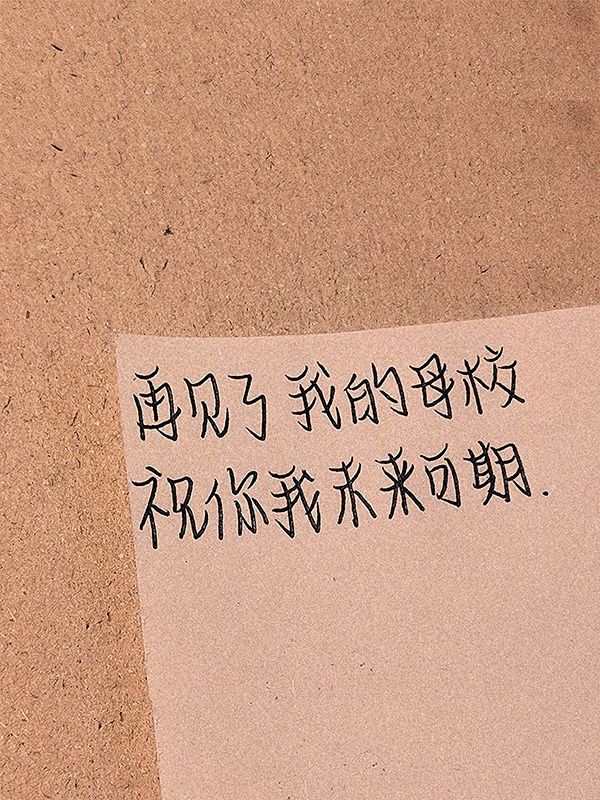 再见了我的母校
祝你我未来可期.